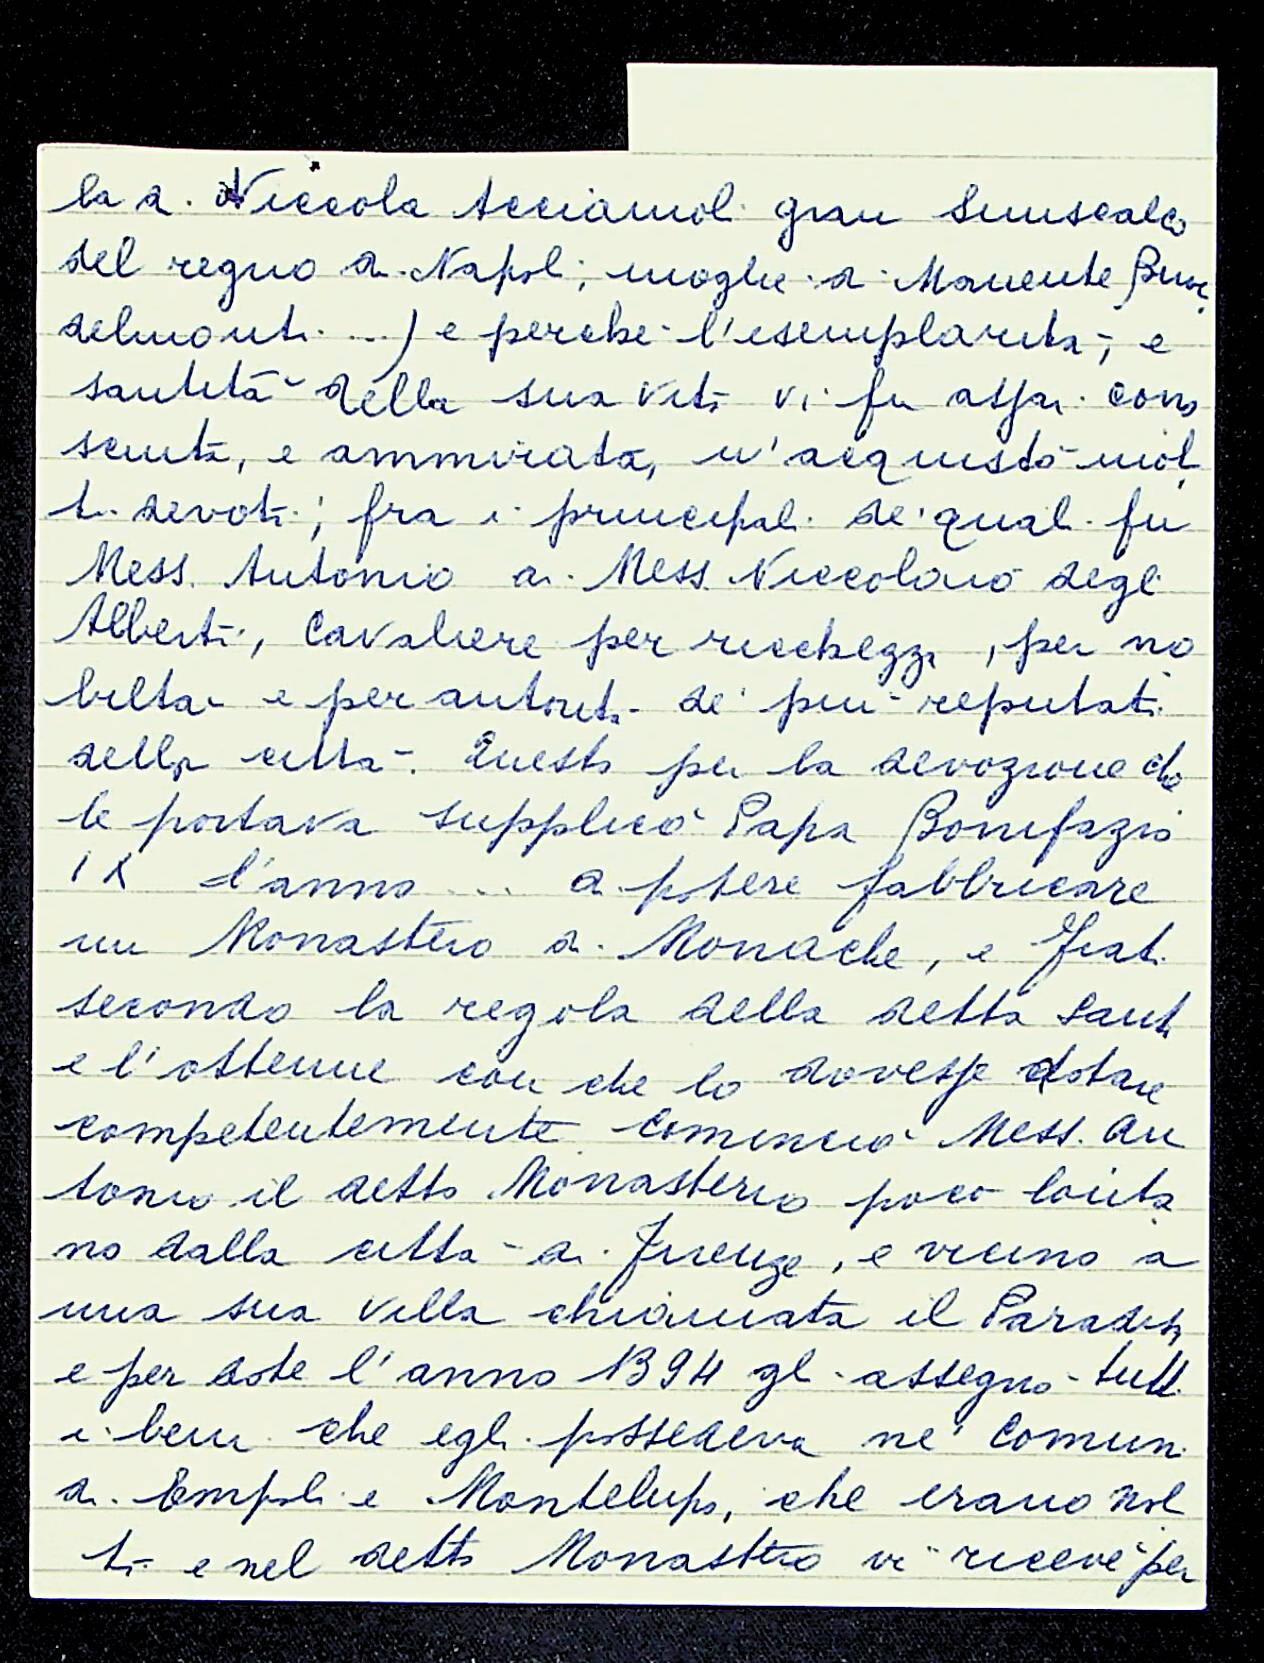 la di Niccola Acciaiuoli gran Siniscalco
del regno di Napoli, moglie di Manente Buon
delmonti ...) e perchè l'esemplarità, e
santità della sua vita vi fu assai cono
sciuta, e ammirata, v'acquistò mol
ti devoti; fra i principali de' quali fu
Mess. Antonio di Mess. Niccolaio degli
Alberti, Cavaliere per ricchezza, per no
biltà e per autorità de' più reputati
della città. Questo per la devozione che
le portava supplicò Papa Bonifazio
IX l'anno ... di potere fabbricare
un Monastero di Monache, e Frati
secondo la regola della detta Santa
e l'ottenne con che lo dovesse dotare
competentemente Cominciò Mess. An
tonio il detto Monasterio poco lonta
no dalla città di Firenze, e vicino a
una sua villa chiamata il Paradiso
e per dote l'anno 1394 gli assegnò tutti
i beni che egli possedeva ne' Comuni
di Empoli e Montelupo, che erano mol
ti e nel detto Monastero vi ricevè per